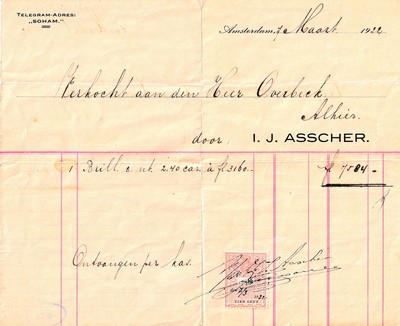 TELEGRAM-ADRES:
„SOHAM."
Amsterdam, 7 Maart 1922
Verkocht aan den Heer Overbeek.
Alhier.
door I. J. ASSCHER.
1 Brill. 2.40 car. à fl 3160.- fl 7584 -
Ontvangen per kas.
Asscher
TIEN CENT